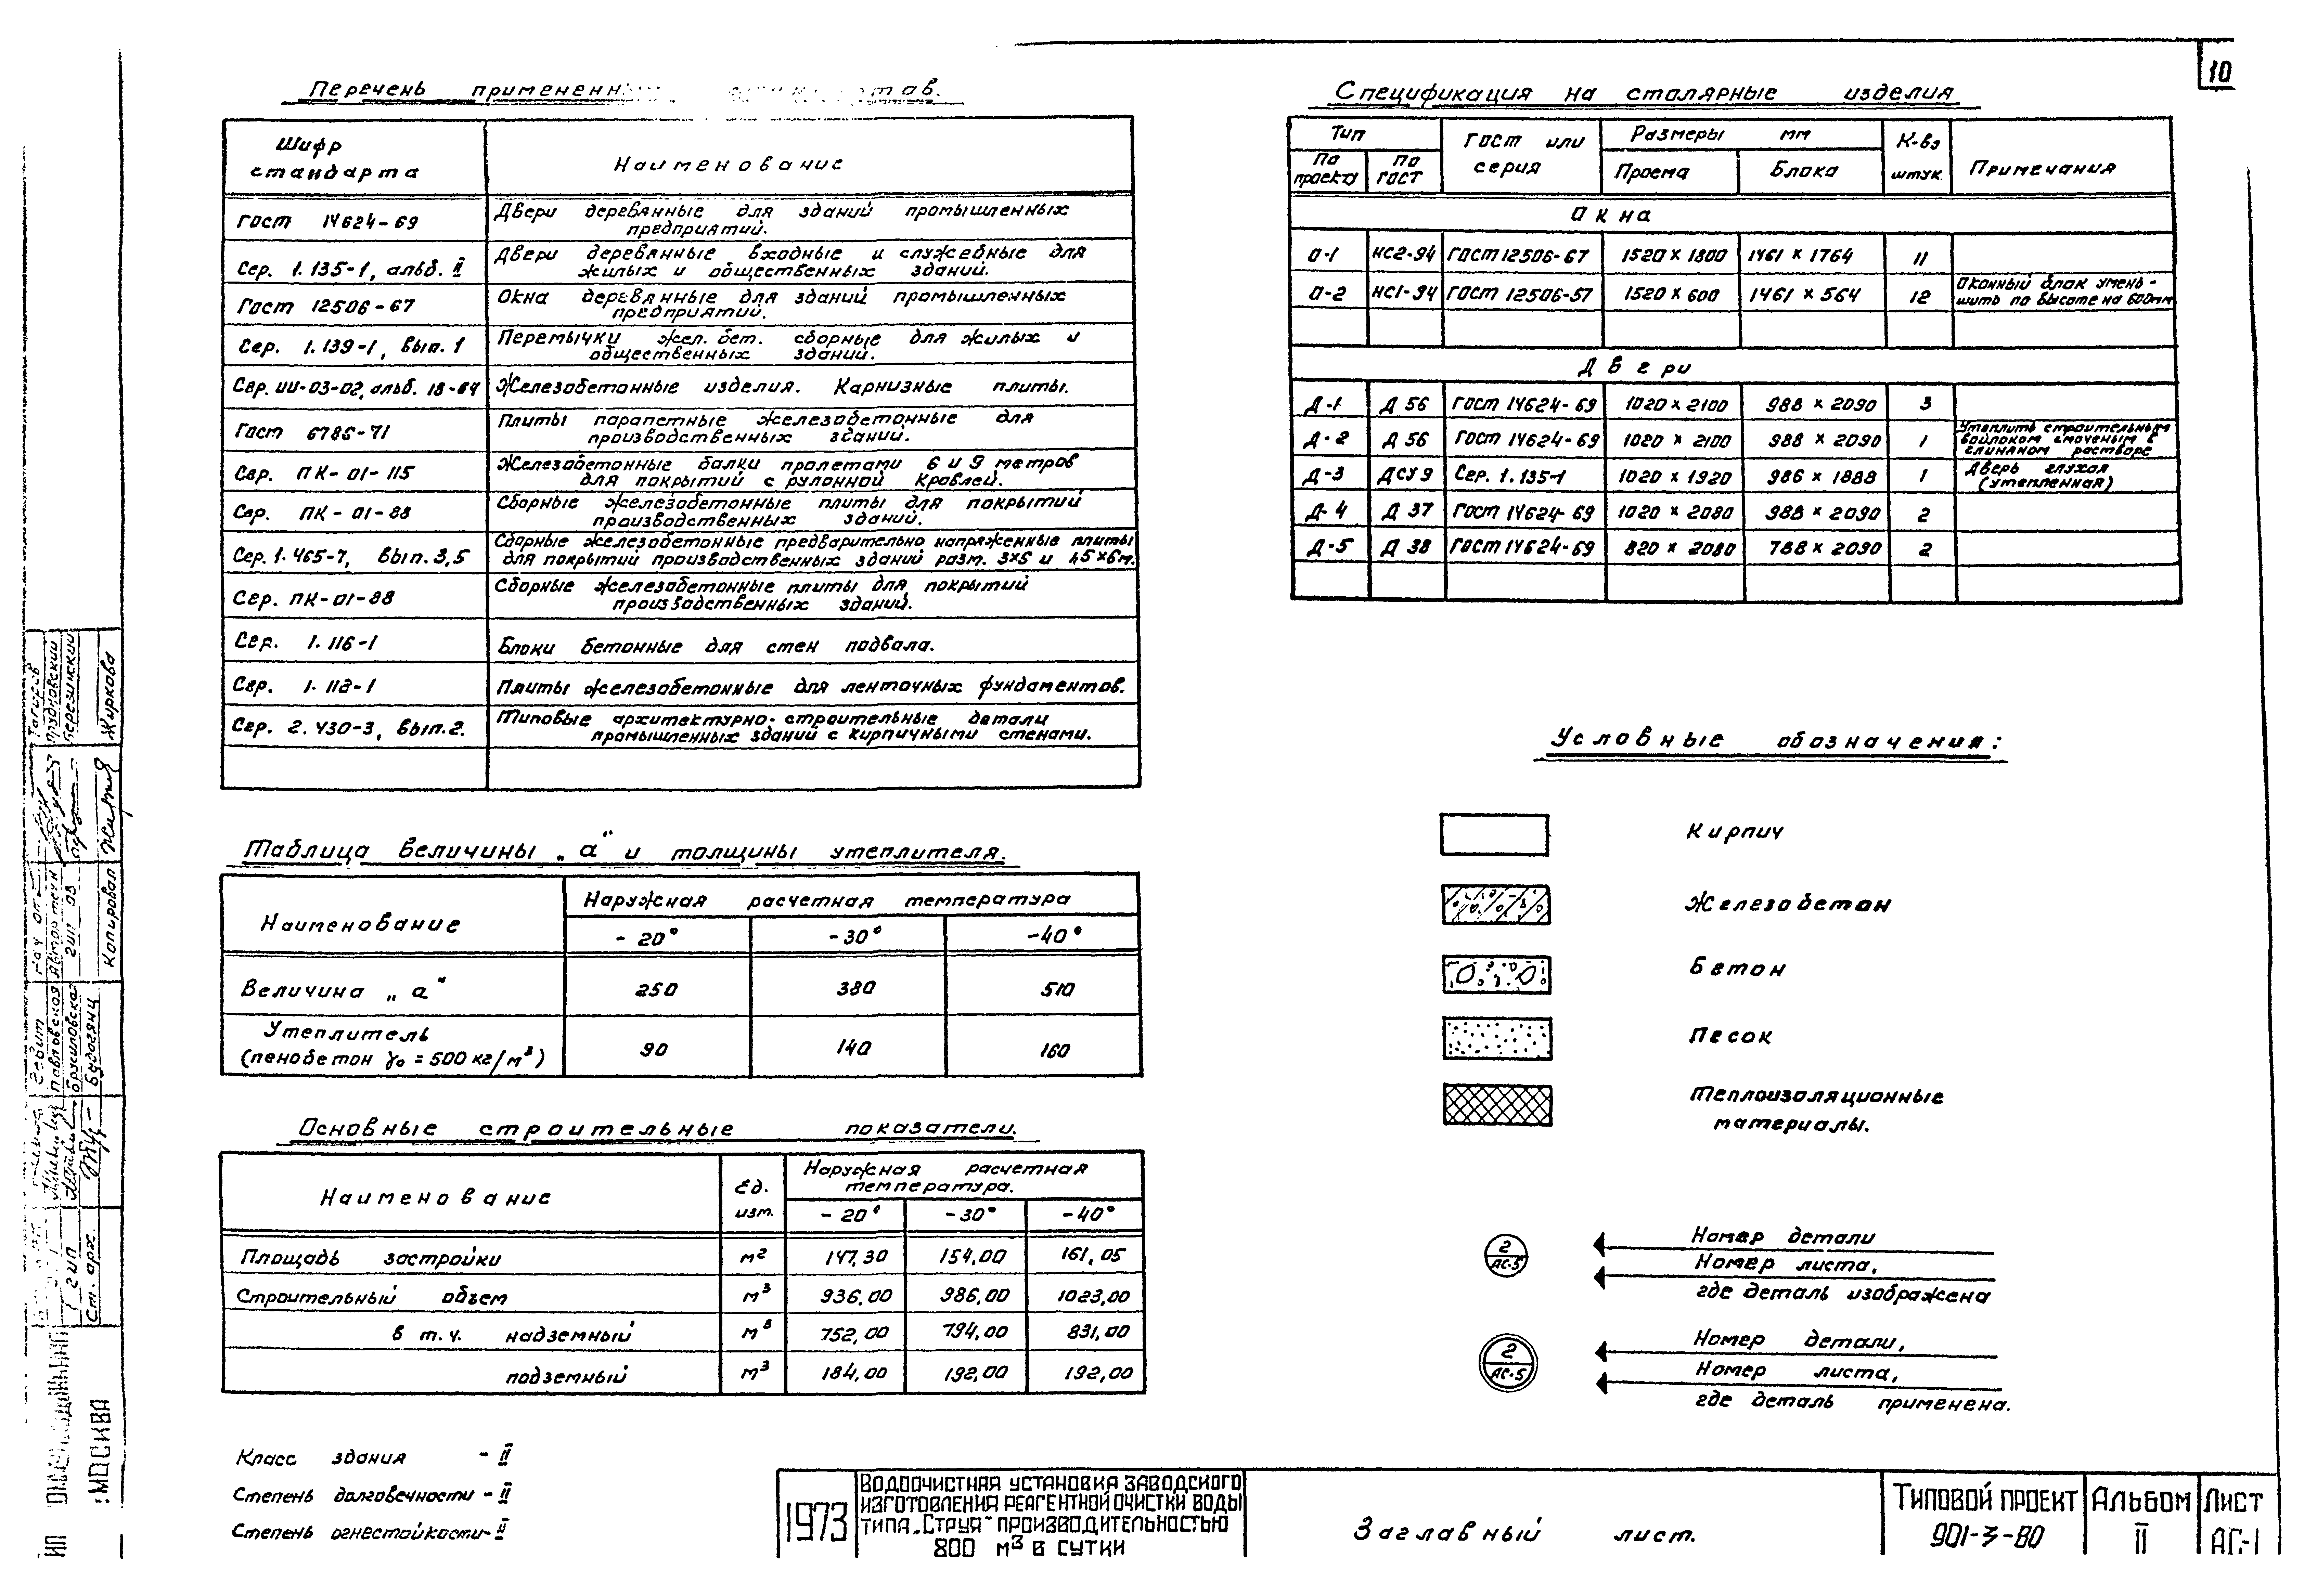 10
Перечень
Шифр стандарта
Наименование
Гост 14624-69
Двери деревянные для зданий промышленных
предприятий.
Сер. 1.135-1, альб. II
Двери деревянные входные и служебные для
жилых и общественных зданий.
Гост 12506-67
Окна деревянные для зданий промышленных
предприятий.
Сер. 1.139-1, вып. 1
Перемычки жел. бет. сборные для жилых и
общественных зданий.
Сер. ИИ-03-02, альб. 18-64
Железобетонные изделия. Карнизные плиты.
Гост 6786-71
Плиты парапетные железобетонные для
производственных зданий.
Сер. ПК-01-115
Железобетонные балки пролетами 6 и 9 метров
для покрытий с рулонной кровлей.
Сер. ПК-01-88
Сборные железобетонные плиты для покрытий
производственных зданий.
Сер. 1.465-7, вып. 3,5
Сборные железобетонные предварительно напряженные плиты
для покрытий производственных зданий разм.
Сер. ПК-01-88
Сборные железобетонные плиты для покрытий
производственных зданий.
Сер. 1.116-1
Блоки бетонные для стен подвала.
Сер. 1.112-1
Плиты железобетонные для ленточных фундаментов.
Сер. 2.430-3, вып.2.
Типовые архитектурно-строительные детали
промышленных зданий с кирпичными стенами.
Таблица величины „а" и толщины утеплителя.
Наименование
Наружная расчетная температура
-20° -30° -40°
Величина „а" 250 380 510
Утеплитель
(пенобетон γо = 500 кг/м³) 90 140 160
Основные строительные показатели.
Наименование
Ед. изм.
Наружная расчетная
температура.
-20° -30° -40°
Площадь застройки м² 147,30 154,00 161,05
Строительный объем м³ 936,00 986,00 1023,00
в т.ч. надземный м³ 752,00 794,00 831,00
подземный м³ 184,00 192,00 192,00
Класс здания - II
Степень долговечности - II
Степень огнестойкости - II
Спецификация на столярные изделия
Тип
По проекту
по ГОСТ
Гост или серия
Размеры мм
Проема
Блока
К-во штук.
Примечания
Окна
О-1 НС2-94 Гост 12506-67 1520 × 1800 1461 × 1764 11
О-2 НС1-94 Гост 12506-67 1520 × 600 1461 × 564 12 Оконный блок умень-
шить по высоте на 600мм
Двери
Д-1 Д 56 Гост 14624-69 1020 × 2100 988 × 2090 3
Д-2 Д 56 Гост 14624-69 1020 × 2100 988 × 2090 1 Утеплить строительным
войлоком смоченым в
глиняном растворе
Д-3 ДСУ9 Сер. 1.135-1 1020 × 1920 986 × 1888 1 Дверь глухая
(утепленная)
Д-4 Д 37 Гост 14624-69 1020 × 2080 988 × 2090 2
Д-5 Д 38 Гост 14624-69 820 × 2080 788 × 2090 2
Условные обозначения:
Кирпич
Железобетон
Бетон
Песок
Теплоизоляционные
материалы.
2
АС-5
Номер детали
Номер листа,
где деталь изображена
2
АС-5
Номер детали,
Номер листа,
где деталь применена.
1973
Водоочистная установка заводского
изготовления реагентной очистки воды
типа „Струя" производительностью
800 м³ в сутки
Заглавный лист.
Типовой проект
901-3-80
Альбом
II
Лист
АС-1
Жиркова
Копировал
Будогянц
Ст. арх.
Москва